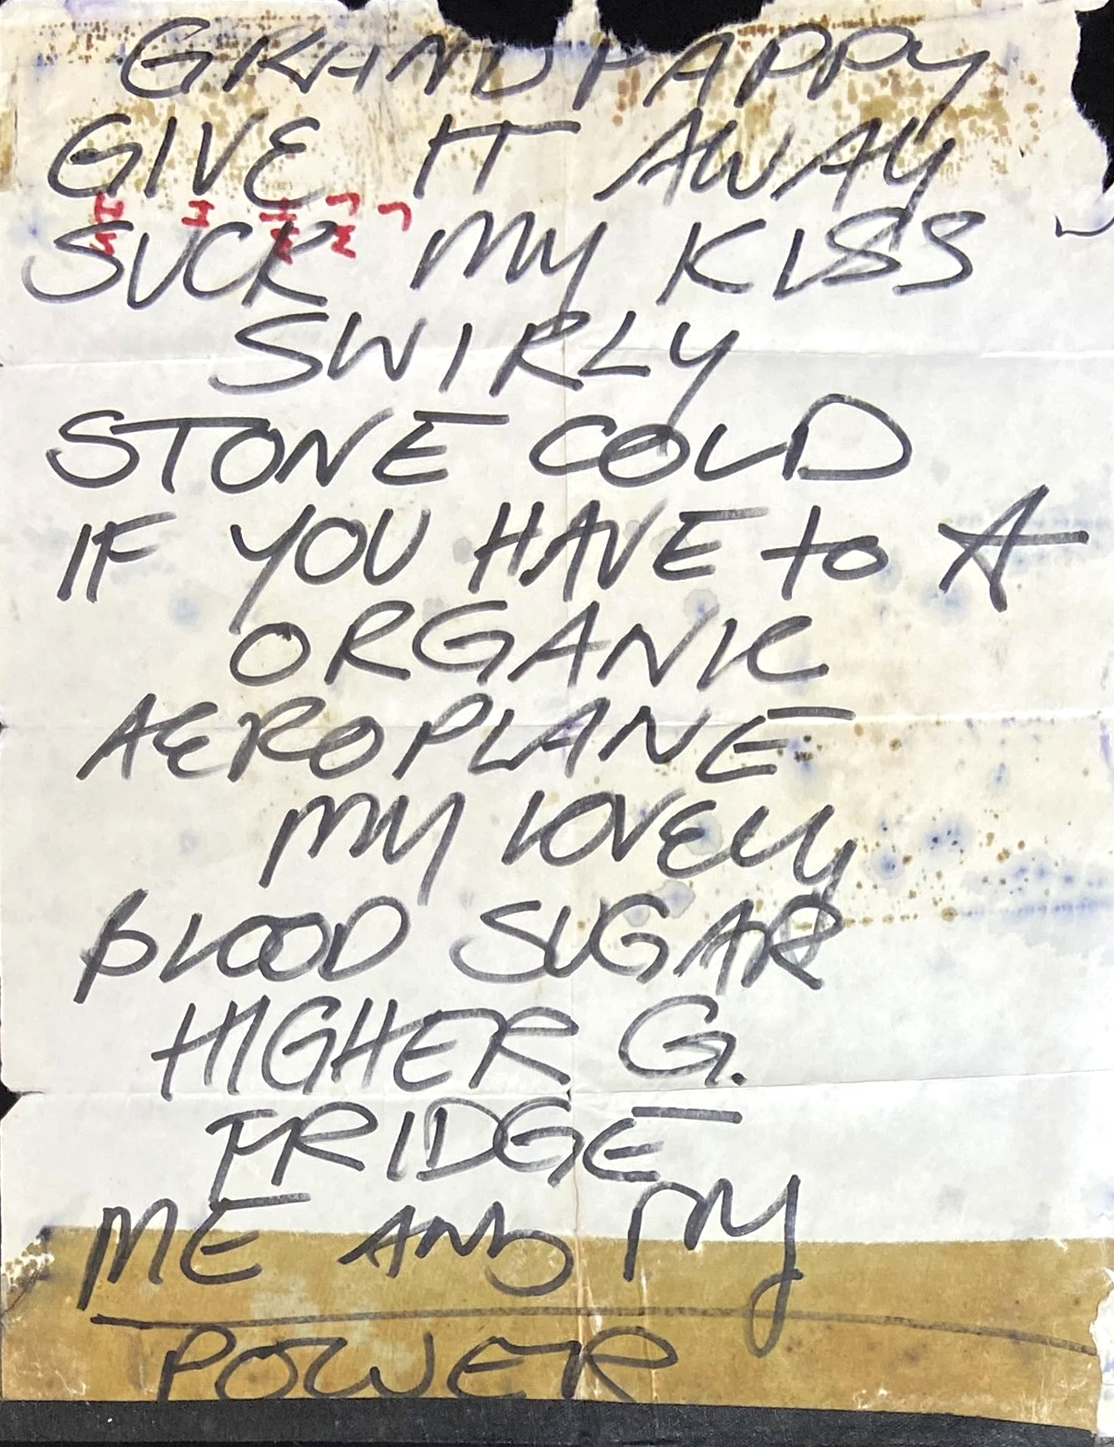 GRANDPAPPY
GIVE IT AWAY
SUCK MY KISS
SWIRLY
STONE COLD
IF YOU HAVE to A
ORGANIC
AEROPLANE
MY LOVELY
BLOOD SUGAR
HIGHER G.
FRIDGE
ME AND MY
POWER